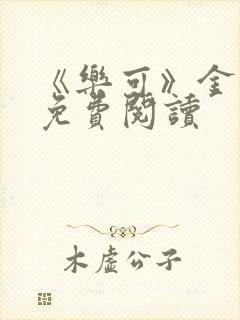 《樂可》全
免費閱讀
木虛公子